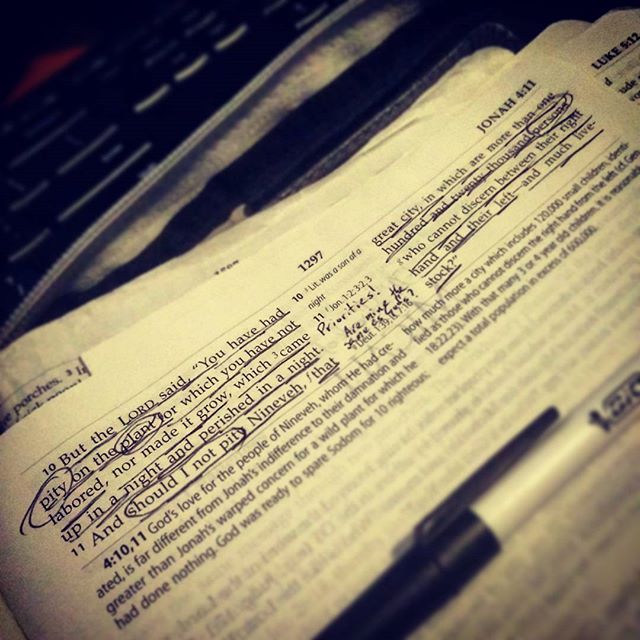 JONAH 4:11
LUKE
1297
10 But the LORD said, "You have had
pity on the plant for which you have not
labored, nor made it grow, which 3 came
up in a night and perished in a night.
11 And should I not pity Nineveh, that
4:10,11 God's love for the people of Nineveh, whom He had cre-
ated, is far different from Jonah's indifference to their damnation and
greater than Jonah's warped concern for a wild plant for which he
had done nothing. God was ready to spare Sodom for 10 righteous.
10 3 Lit. was a son of a
night
Priorities!
great city, in which are more than one
hundred and twenty thousand persons
who cannot discern between their right
hand and their left—and much live-
stock?"
how much more a city which includes 120,000 small children, identi-
fied as those who cannot discern the right hand from the left
With that many 3 or 4 year old children, it is
expect a total population in excess of 600,000.
porches.